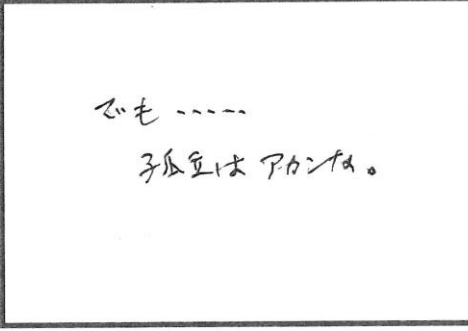 でも -----
孤立は アカンな。